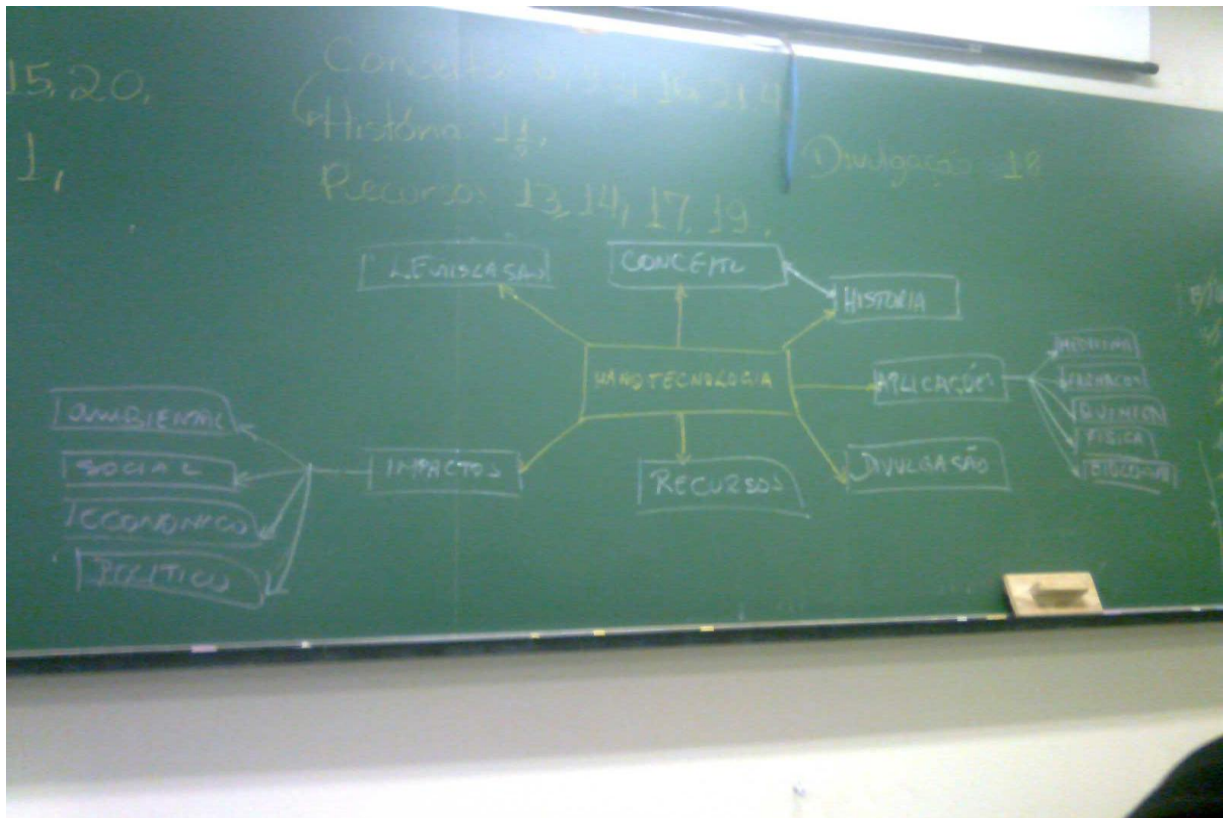 15, 20,
1,
Conceito
História 11,
Recursos 13, 14, 17, 19,
Divulgação 18
CONCEITO
HISTORIA
NANOTECNOLOGIA
APLICAÇÕES
MEDICINA
FARMACOS
QUIMICA
FISICA
DIVULGASÃO
RECURSOS
IMPACTOS
AMBIENTAL
SOCIAL
ECONOMICO
POLITICO